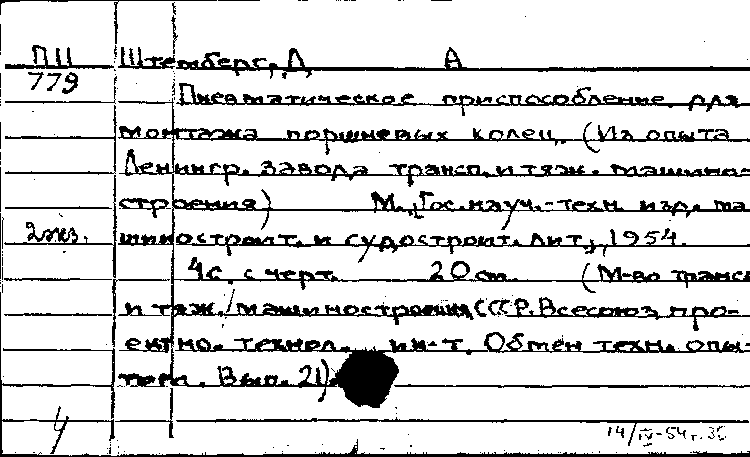 ПII Штемберг, Л А
779 Пневматическое приспособление для
монтажа поршневых колец. (Из опыта
Ленингр. завода трансп. и тяж. машино-
строения) М., Гос. науч.-техн. изд. ма
2экз. шиностроит. и судостроит. лит., 1954.
4с. с черт. 20 см. (М-во трансп
и тяж. машиностроения СССР. Всесоюз. про-
ектно-технол. ин-т. Обмен техн. опы-
том. Вып. 21).
4 14/IV-54г.